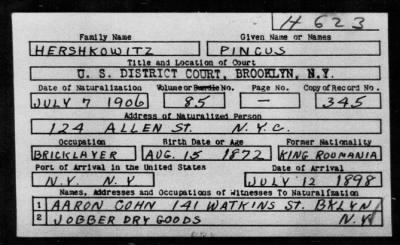 H 623
Family Name Given Name or Names
HERSHKOWITZ PINCUS
Title and Location of Court
U. S. DISTRICT COURT, BROOKLYN, N.Y.
Date of Naturalization Volume or Bundle No. Page No. Copy of Record No.
JULY 7 1906 85 — 345
Address of Naturalized Person
124 ALLEN ST. N.Y.C.
Occupation Birth Date or Age Former Nationality
BRICKLAYER AUG. 15 1872 KING ROUMANIA
Port of Arrival in the United States Date of Arrival
N.Y. N.Y JULY 12 1898
Names, Addresses and Occupations of Witnesses To Naturalization
1 AARON COHN 141 WATKINS ST. BKLYN
2 JOBBER DRY GOODS N.Y.